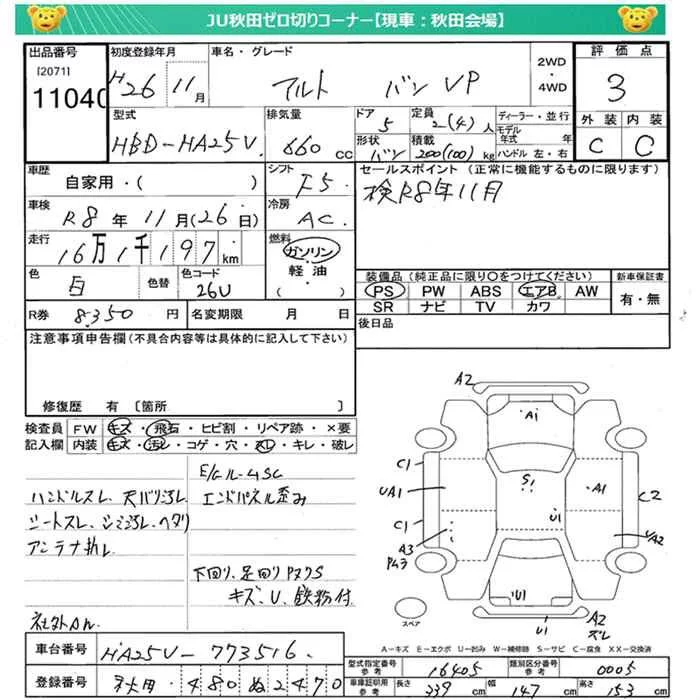 JU秋田ゼロ切りコーナー【現車：秋田会場】
出品番号 初度登録年月 車名・グレード 2WD・4WD 評価点
[2071]
11040 H26 11月 アルト バン VP 3
型式 排気量 ドア 5 定員 2(4)人 ディーラー・並行 外装 内装
HBD-HA25V 660cc 形状 バン 積載 200(100)kg モデル年式 年 ハンドル 左・右 C C
車歴 シフト セールスポイント（正常に機能するものに限ります）
自家用・( ) F5 検R8年11月
車検 冷房
R8年11月(26日) AC
走行 燃料
16万1千197km ガソリン・軽油・( )
色 色替 色コード 装備品（純正品に限り○をつけてください） 新車保証書
白 26U PS PW ABS エアB AW 有・無
SR ナビ TV カワ
R券 8350円 名変期限 月 日 後日品
注意事項申告欄(不具合内容等は具体的に記入して下さい)
修復歴 有〔箇所 〕
検査員 FW キズ・飛石・ヒビ割・リペア跡・×要
記入欄 内装 キズ・汚レ・コゲ・穴・スレ・キレ・破レ
E/Gル-ムSC
ハンドルスレ、天バリ汚レ エンドパネル歪み
シートスレ、シミ汚レ、ヘタリ
アンテナ折レ
下回り、足回りサスクS
キズ、U、鉄粉付
社外Aル
A2
A1
C1 S1
UA1 A1 C2
C1 U1
A3 UA2
U1
スペア U1 A2
ズレ
A－キズ E－エクボ U－凹み W－補修跡 S－サビ C－腐食 XX－交換済
車台番号 HA25V-773516
型式指定番号 参考 16405 類別区分番号 参考 0005
登録番号 秋田・480ぬ2470
車庫証明用 参考 長さ 339cm 幅 147cm 高さ 153cm